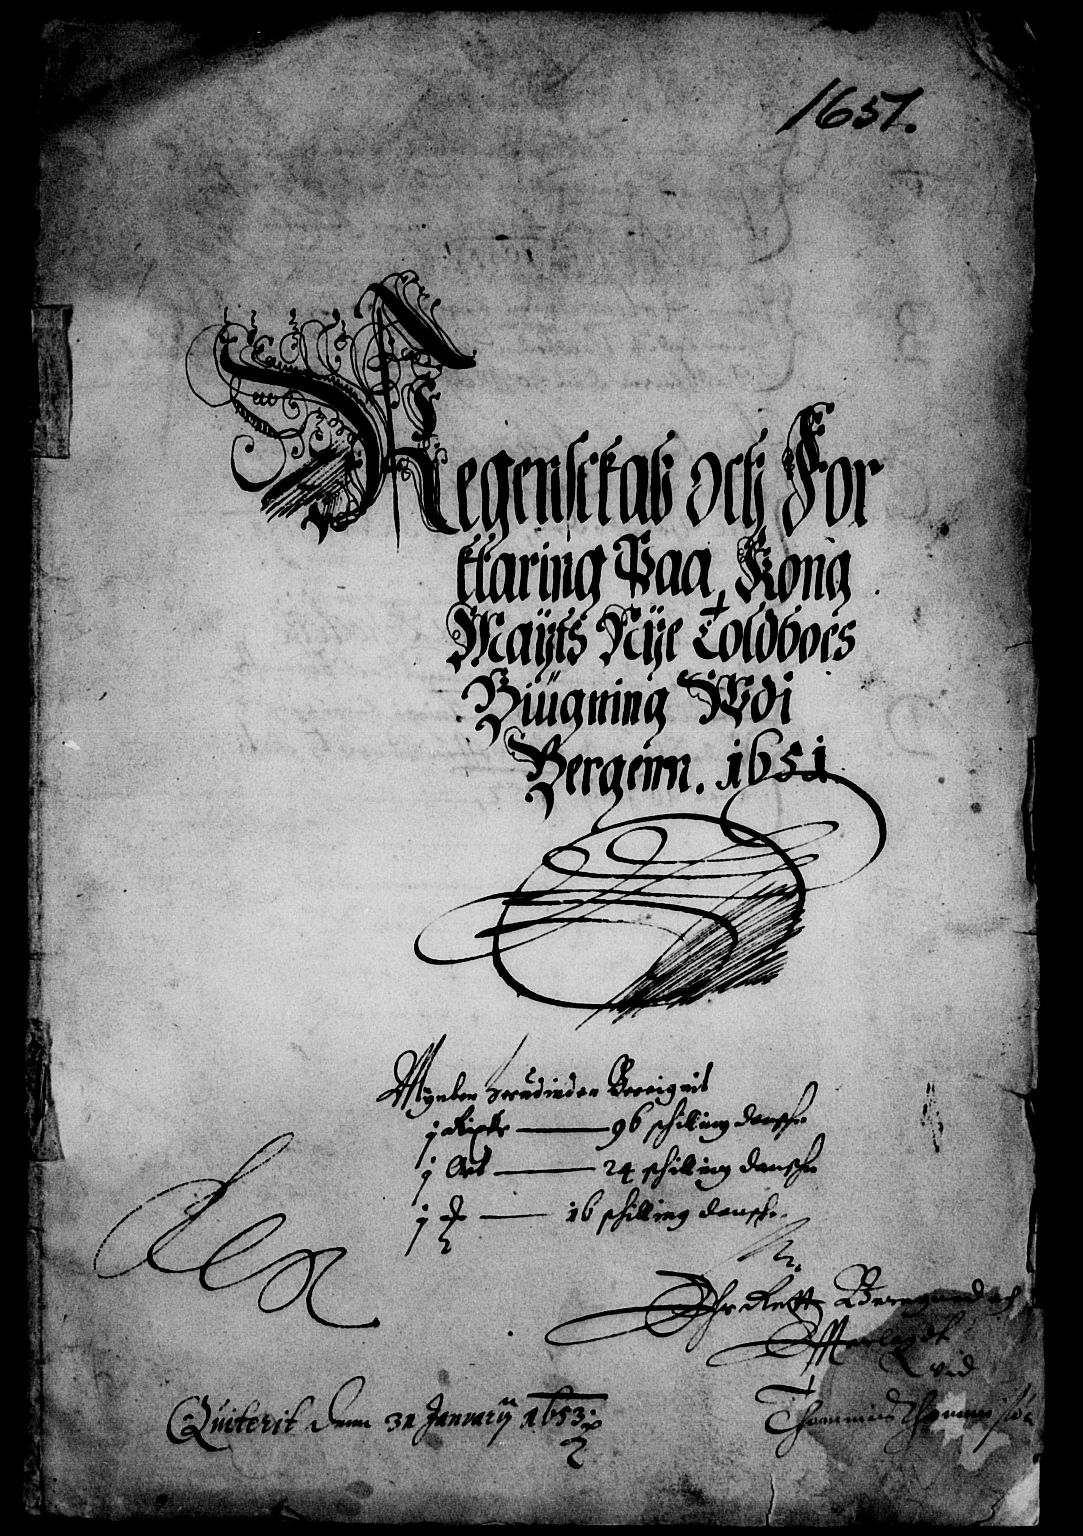 1651.
Regenskab och For
klaring Paa, Kong
Maÿts Nÿe Toldbois
Biügning Wdi
Bergenn. 1651
Mynten herudinden Bereignit
j Rixdr 96 schilling dansche
j Ort 24 schilling dansche
j 16 schilling dansche
Offuerlagdt
vid
Quiterit denn 31 Januarij 1653